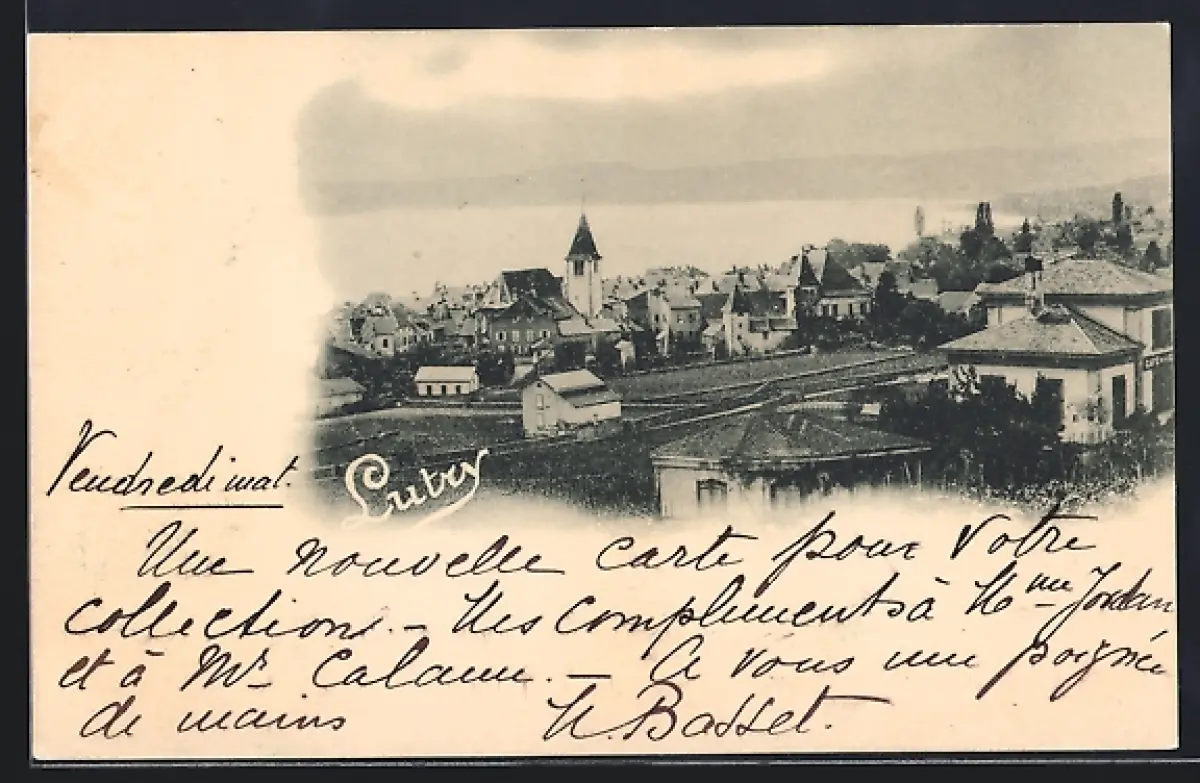 Lutry
Vendredi mat.
Une nouvelle carte pour votre
collection. – Mes compliments à Mme Jordan
et à Mr. Calame. – A vous une poignée
de mains H. Basset.